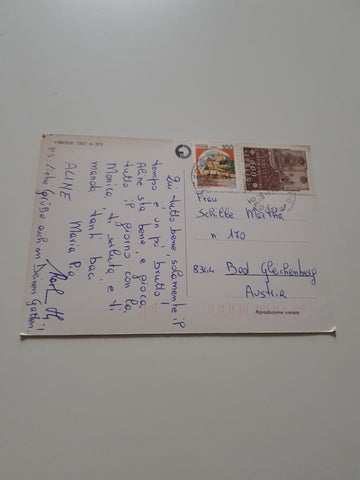 FUNDRES (BZ) m. 1159
Qui tutto bene, solamente il
tempo è un po' brutto!
Aline sta bene e gioca
tutto il giorno con la
Monica, ti saluta e ti
manda tanti baci
ALINE Maria Pia
P.S: Liebe Grüße auch an Deinen Gatten!
Frau
Schille Martha
n° 170
8344 Bad Gleichenberg
Austria
Riproduzione vietata
100
600